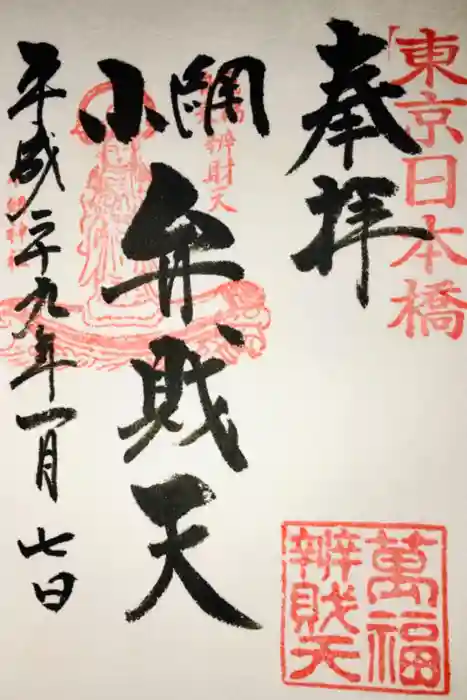 東京日本橋
奉拝
小網
弁財天
辨財天
平成二十九年一月七日
萬福
辨財天